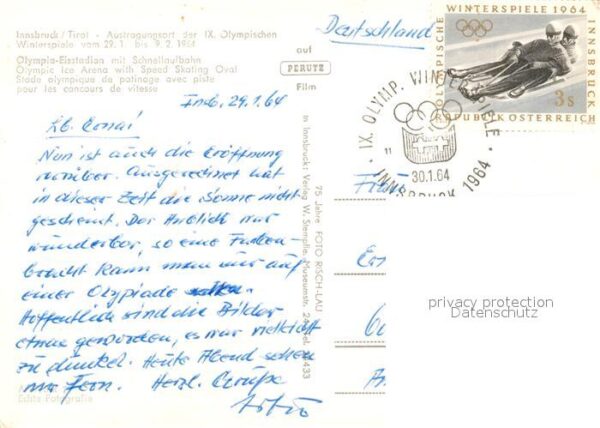 Innsbruck / Tirol - Austragungsort der IX. Olympischen
Winterspiele vom 29.1. bis 9.2. 1964
Olympia-Eisstadion mit Schnellaufbahn
Olympic Ice Arena with Speed Skating Oval
Stade olympique de patinage avec piste
pour les concours de vitesse
auf
PERUTZ
Film
Deutschland
OLYMPISCHE WINTERSPIELE 1964 INNSBRUCK
3 S
REPUBLIK ÖSTERREICH
IX. OLYMP. WINTERSPIELE
11
30.1.64
INNSBRUCK 1964
Insb, 29.1.64
Lb. Conni
Nun ist auch die Eröffnung
vorüber. Ausgerechnet hat
in dieser Zeit die Sonne nicht
gescheint. Der Anblick war
wunderbar, so eine Farben-
pracht kann man nur auf
einer Olypiade
Hoffentlich sind die Bilder
etwas geworden, es war vielleicht
zu dunkel. Heute Abend sehen
wir Fern. Herzl. Grüße
75 Jahre FOTO RISCH-LAU
in Innsbruck: Verlag W. Stempfle, Museumstr. 24
433
Echte Fotografie
privacy protection
Datenschutz